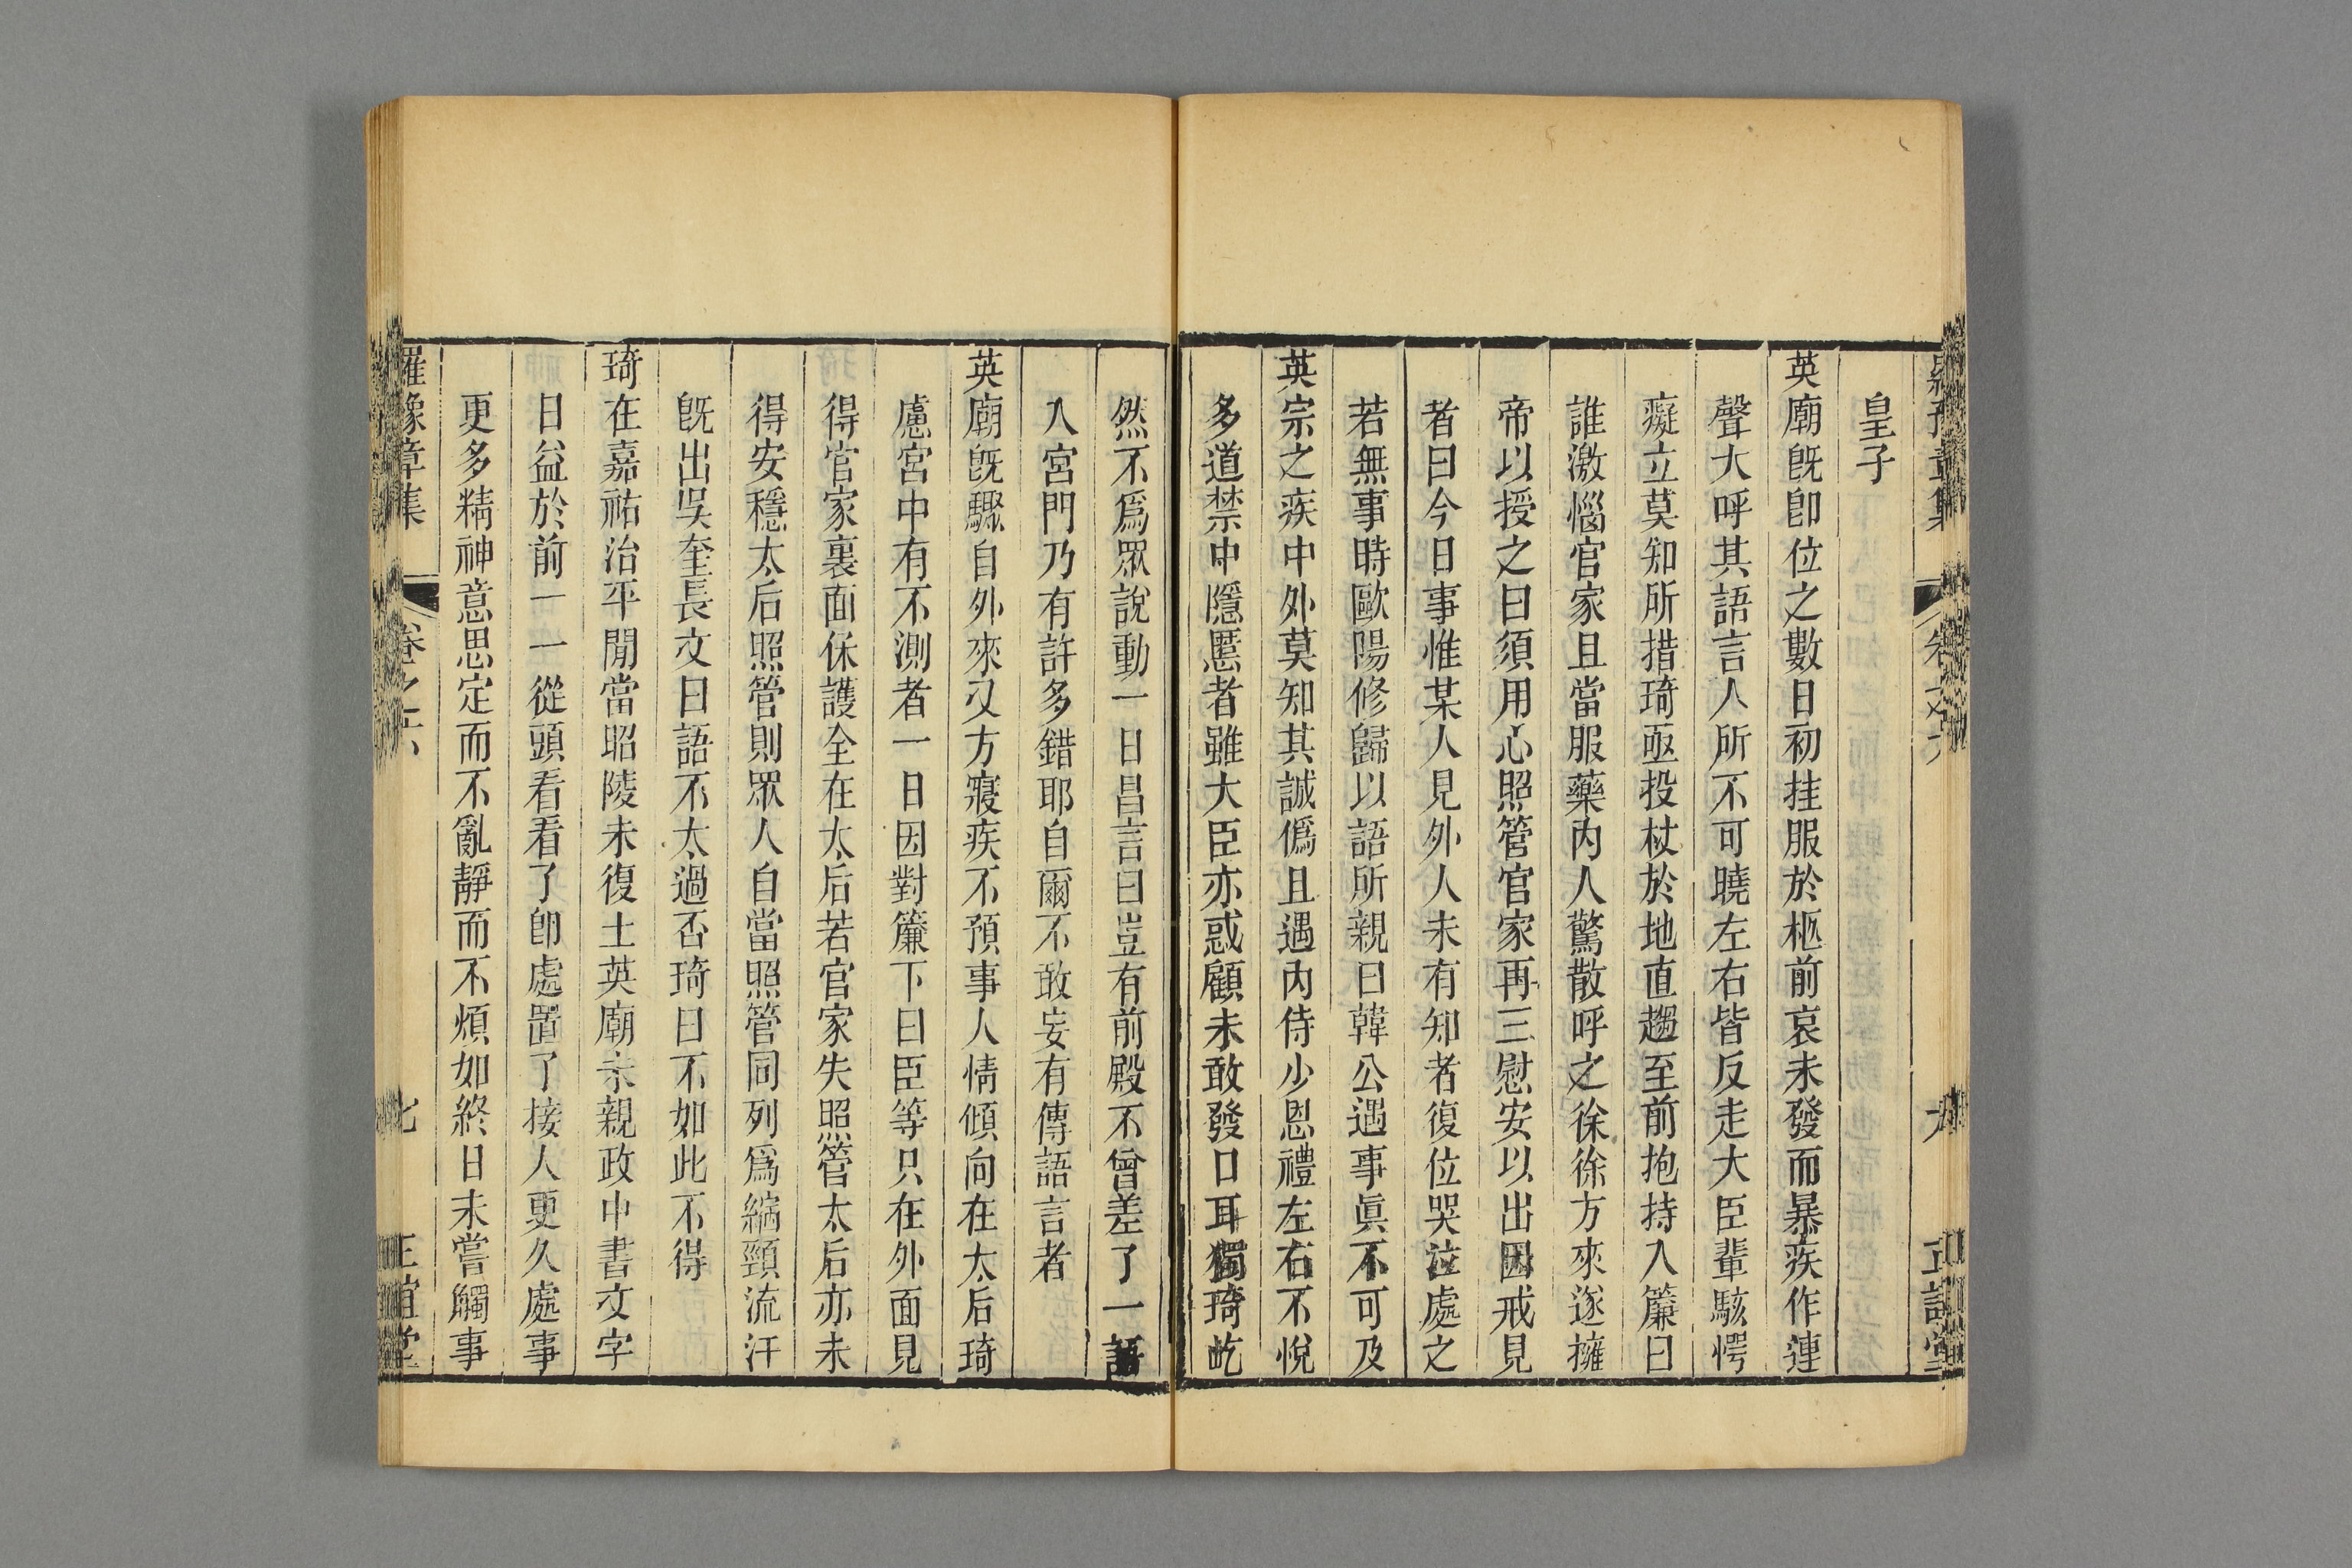 皇子
英廟旣卽位之數日初挂服於柩前哀未發而暴疾作連
聲大呼其語言人所不可曉左右皆反走大臣輩駭愕
癡立莫知所措琦亟投杖於地直趨至前抱持入簾曰
誰激惱官家且當服藥內人驚散呼之徐徐方來遂擁
帝以授之曰須用心照管官家再三慰安以出因戒見
者曰今日事惟某人見外人未有知者復位哭泣處之
若無事時歐陽修歸以語所親曰韓公遇事眞不可及
英宗之疾中外莫知其誠僞且遇內侍少恩禮左右不悅
多道禁中隱慝者雖大臣亦惑顧未敢發口耳獨琦屹
然不爲眾說動一日昌言曰豈有前殿不曾差了一語
入宮門乃有許多錯耶自爾不敢妄有傳語言者
英廟旣驟自外來又方寢疾不預事人情傾向在太后琦
慮宮中有不測者一日因對簾下曰臣等只在外面見
得官家裏面保護全在太后若官家失照管太后亦未
得安穩太后照管則眾人自當照管同列爲縮頸流汗
旣出吳奎長文曰語不太過否琦曰不如此不得
琦在嘉祐治平閒當昭陵未復土英廟未親政中書文字
日益於前一一從頭看看了卽處置了接人更久處事
更多精神意思定而不亂靜而不煩如終日未嘗觸事
羅豫章集 卷之六 正誼堂